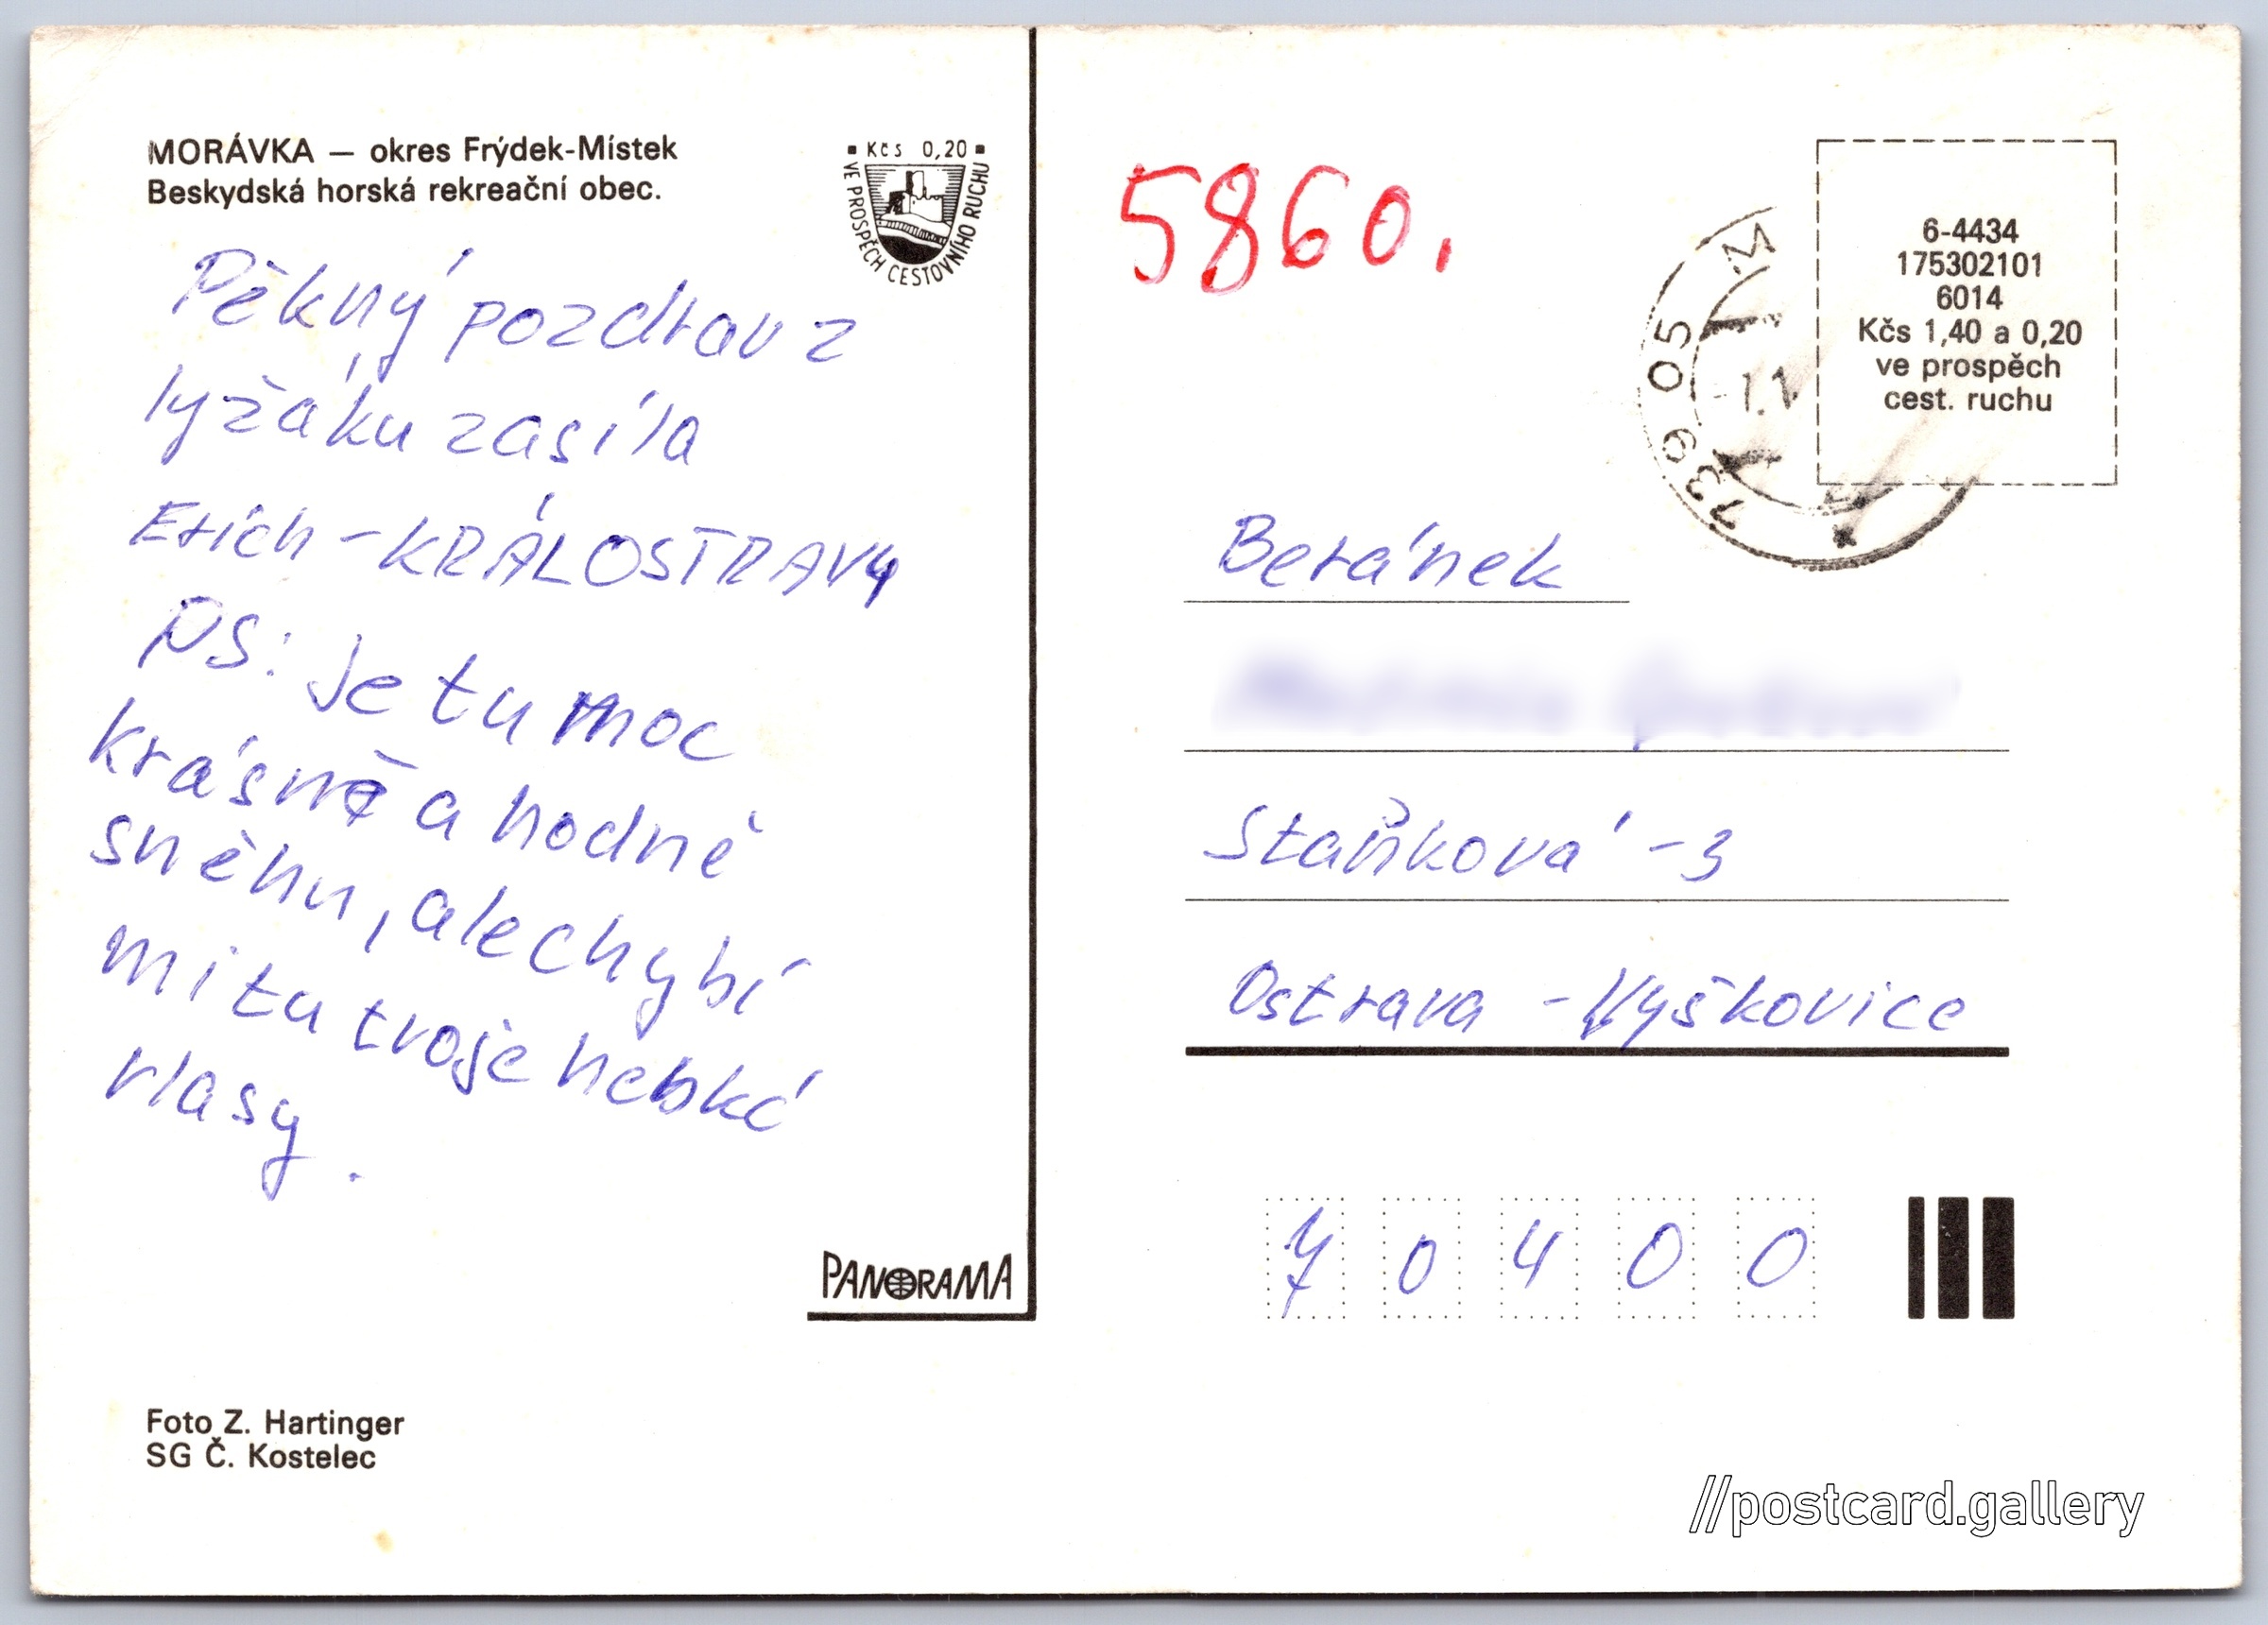 MORÁVKA — okres Frýdek-Místek
Beskydská horská rekreační obec.
Kčs 0,20
VE PROSPĚCH CESTOVNÍHO RUCHU
Pěkný pozdrav z
lyžáku zasílá
Erich - KRÁLOSTRAVY
PS: Je tu moc
krásně a hodně
sněhu, ale chybí
mi tu tvoje hebké
vlasy.
PANORAMA
Foto Z. Hartinger
SG Č. Kostelec
5860.
739 05 M
6-4434
175302101
6014
Kčs 1,40 a 0,20
ve prospěch
cest. ruchu
Beránek
Staňková - 3
Ostrava - Vyškovice
70400
//postcard.gallery